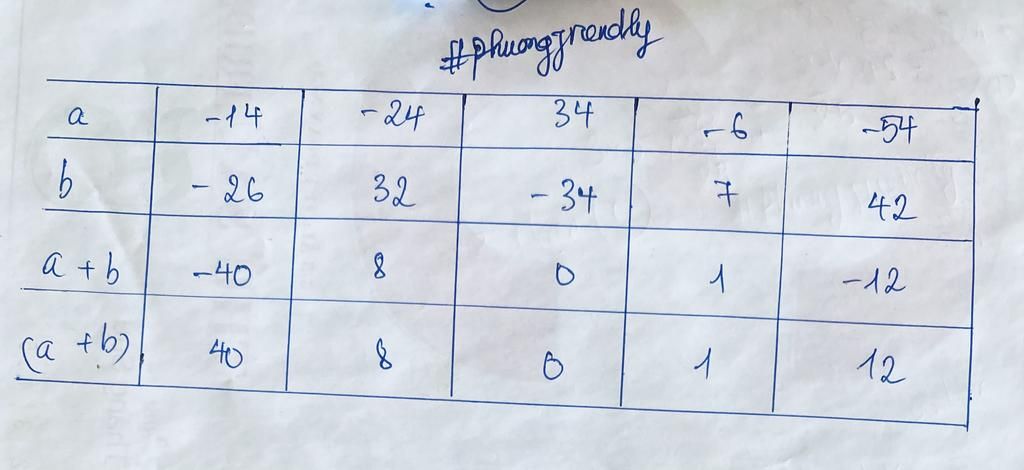 #phuongfriendly
a -14 -24 34 -6 -54
b -26 32 -34 7 42
a+b -40 8 0 1 -12
(a+b) 40 8 0 1 12